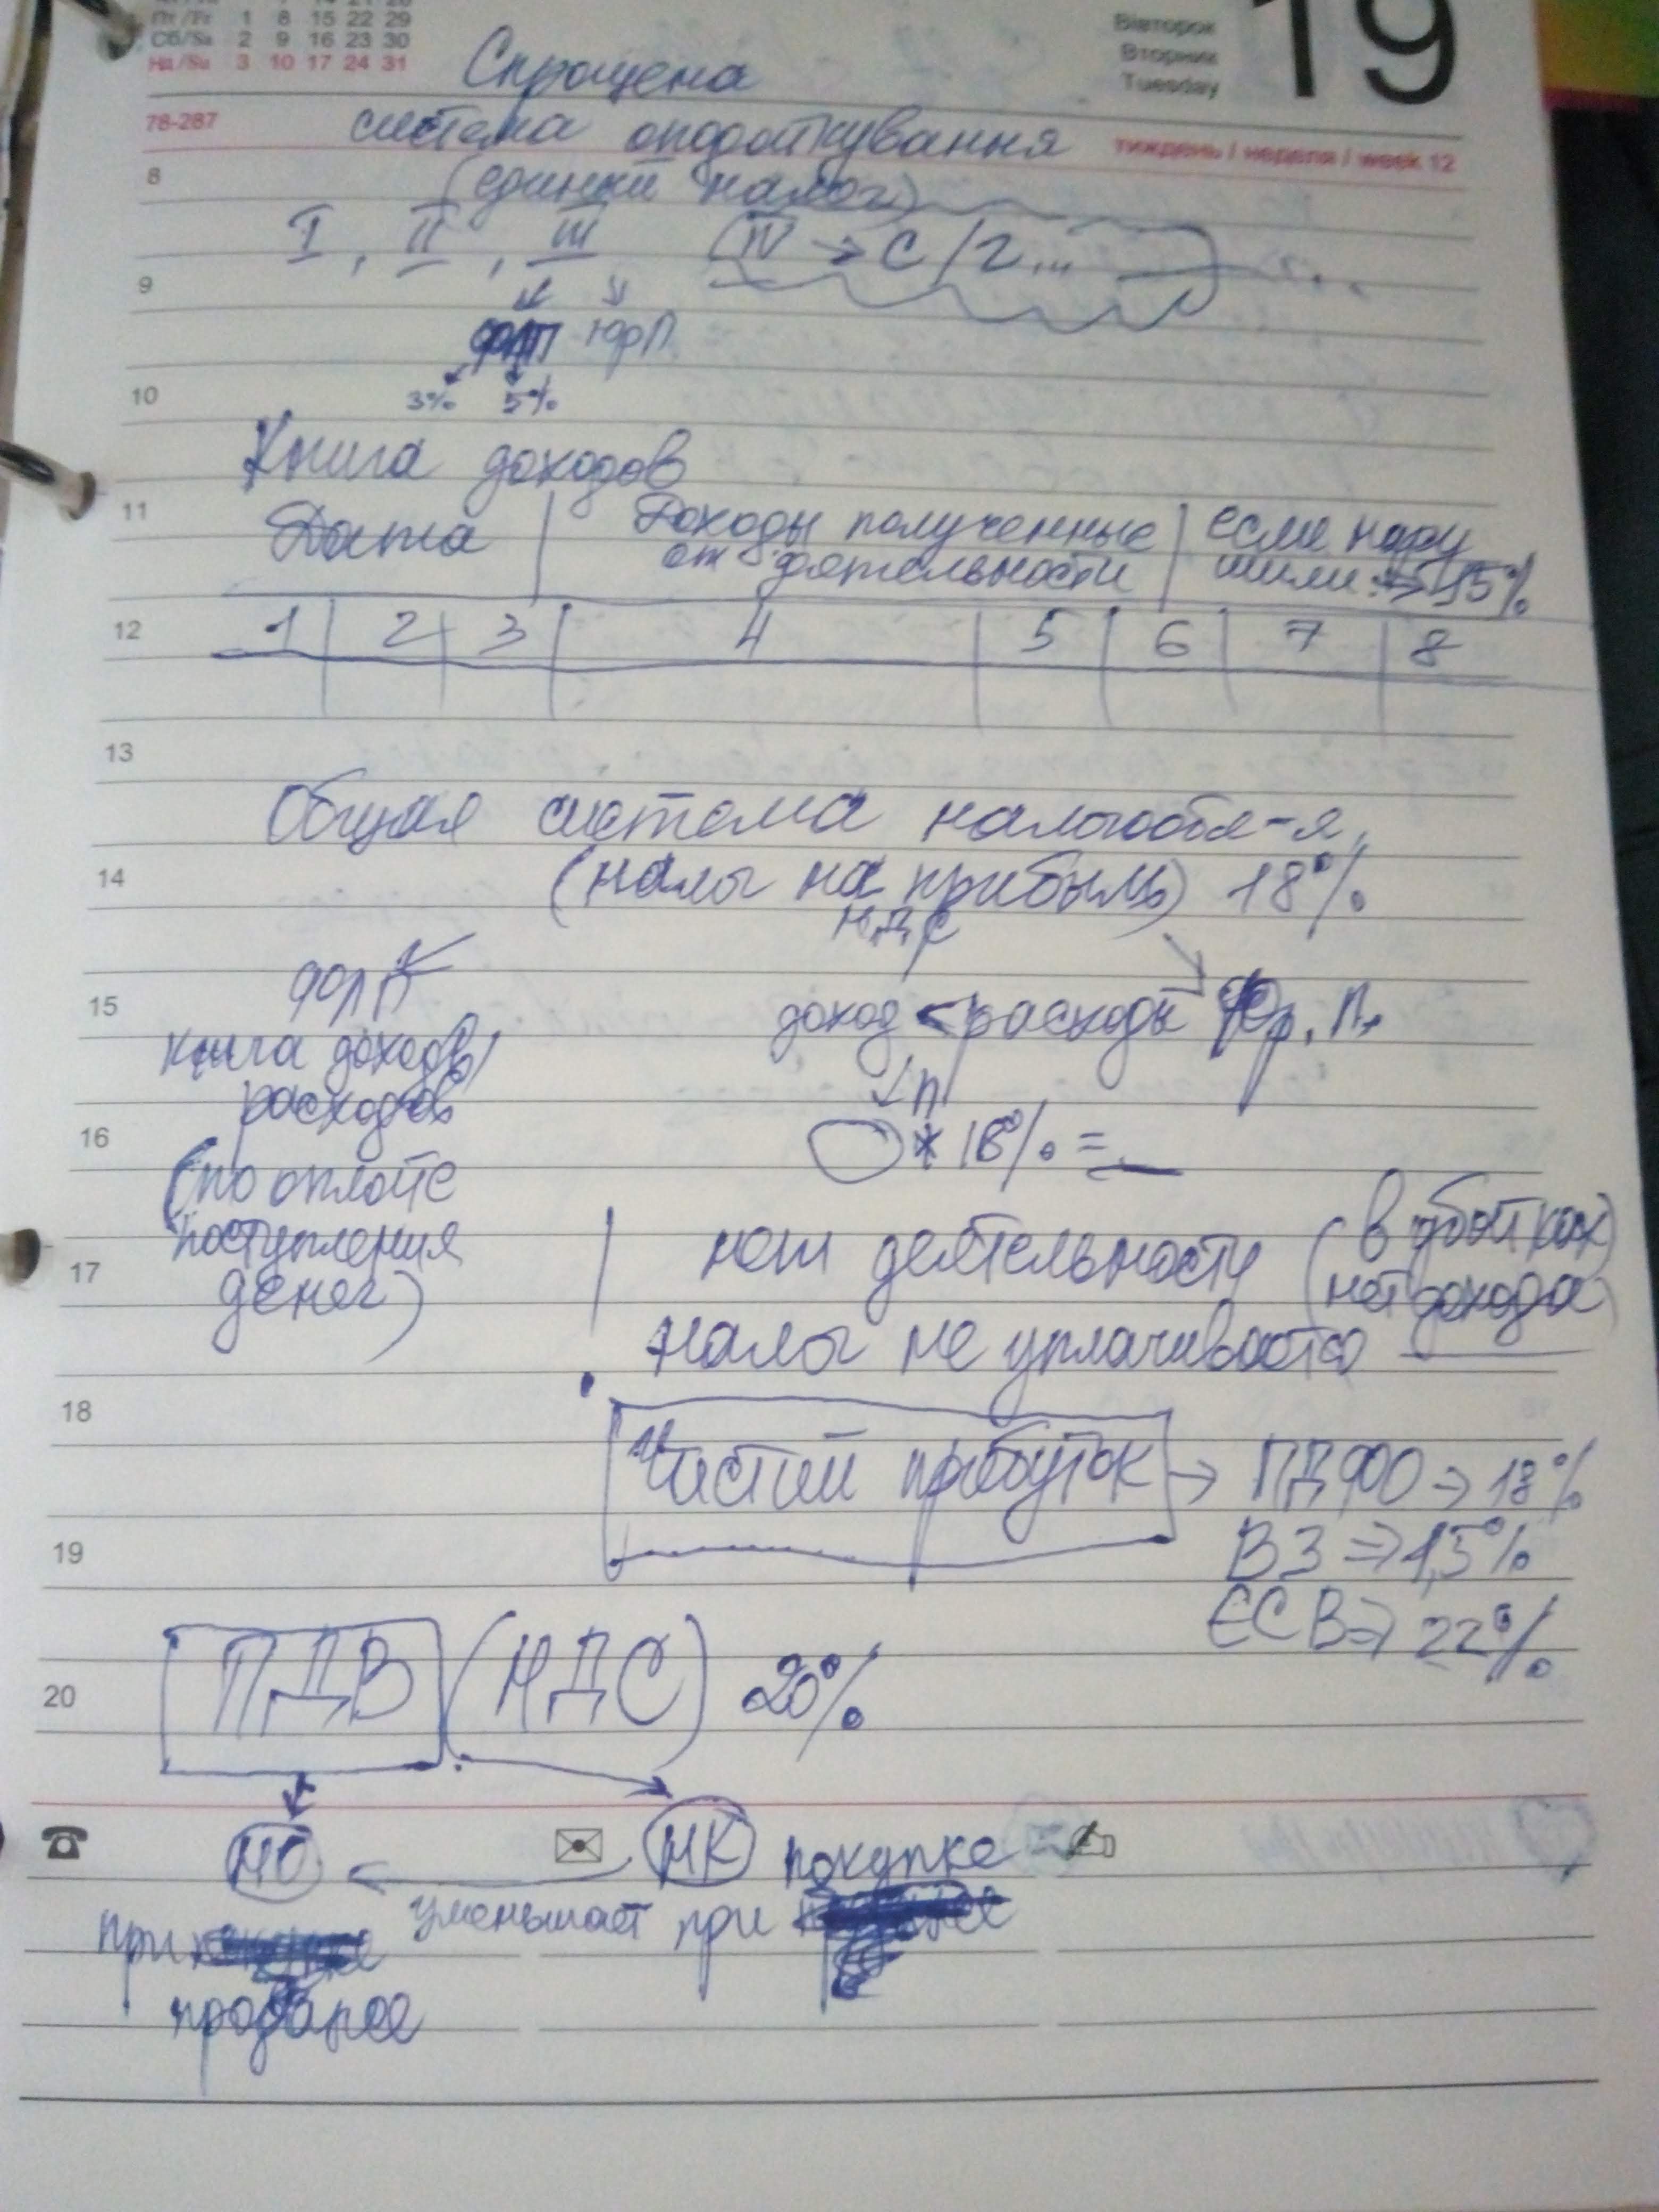 Пт/Fr 1 8 15 22 29
Сб/Sa 2 9 16 23 30
Нд/Su 3 10 17 24 31
Вівторок
Вторник
Tuesday
19
78-287
тиждень / неделя / week 12
Спрощена
система оподаткування
(единый налог)
8
I, II, III (IV → С/Г...
9
ФОП ЮрП
10
3% 5%
Книга доходов
11
Дата Доходы полученные если нару
от деятельности шили → 15%
12
1 2 3 4 5 6 7 8
13
Общая система налогообл-я,
14
(налог на прибыль) 18%
НДС
ФОП
15
доход < расходы Юр. п.
книга доходов/
расходов
П
16
* 18% =
(по оплате
поступления
денег)
17
нет деятельности (в убытках)
(нет дохода)
налог не уплачивается
18
Чистий прибуток → ПДФО → 18%
19
ВЗ ⇒ 1,5%
ЄСВ ⇒ 22%
20
ПДВ (НДС) 20%
НО НК покупке
уменьшает при
при
продаже